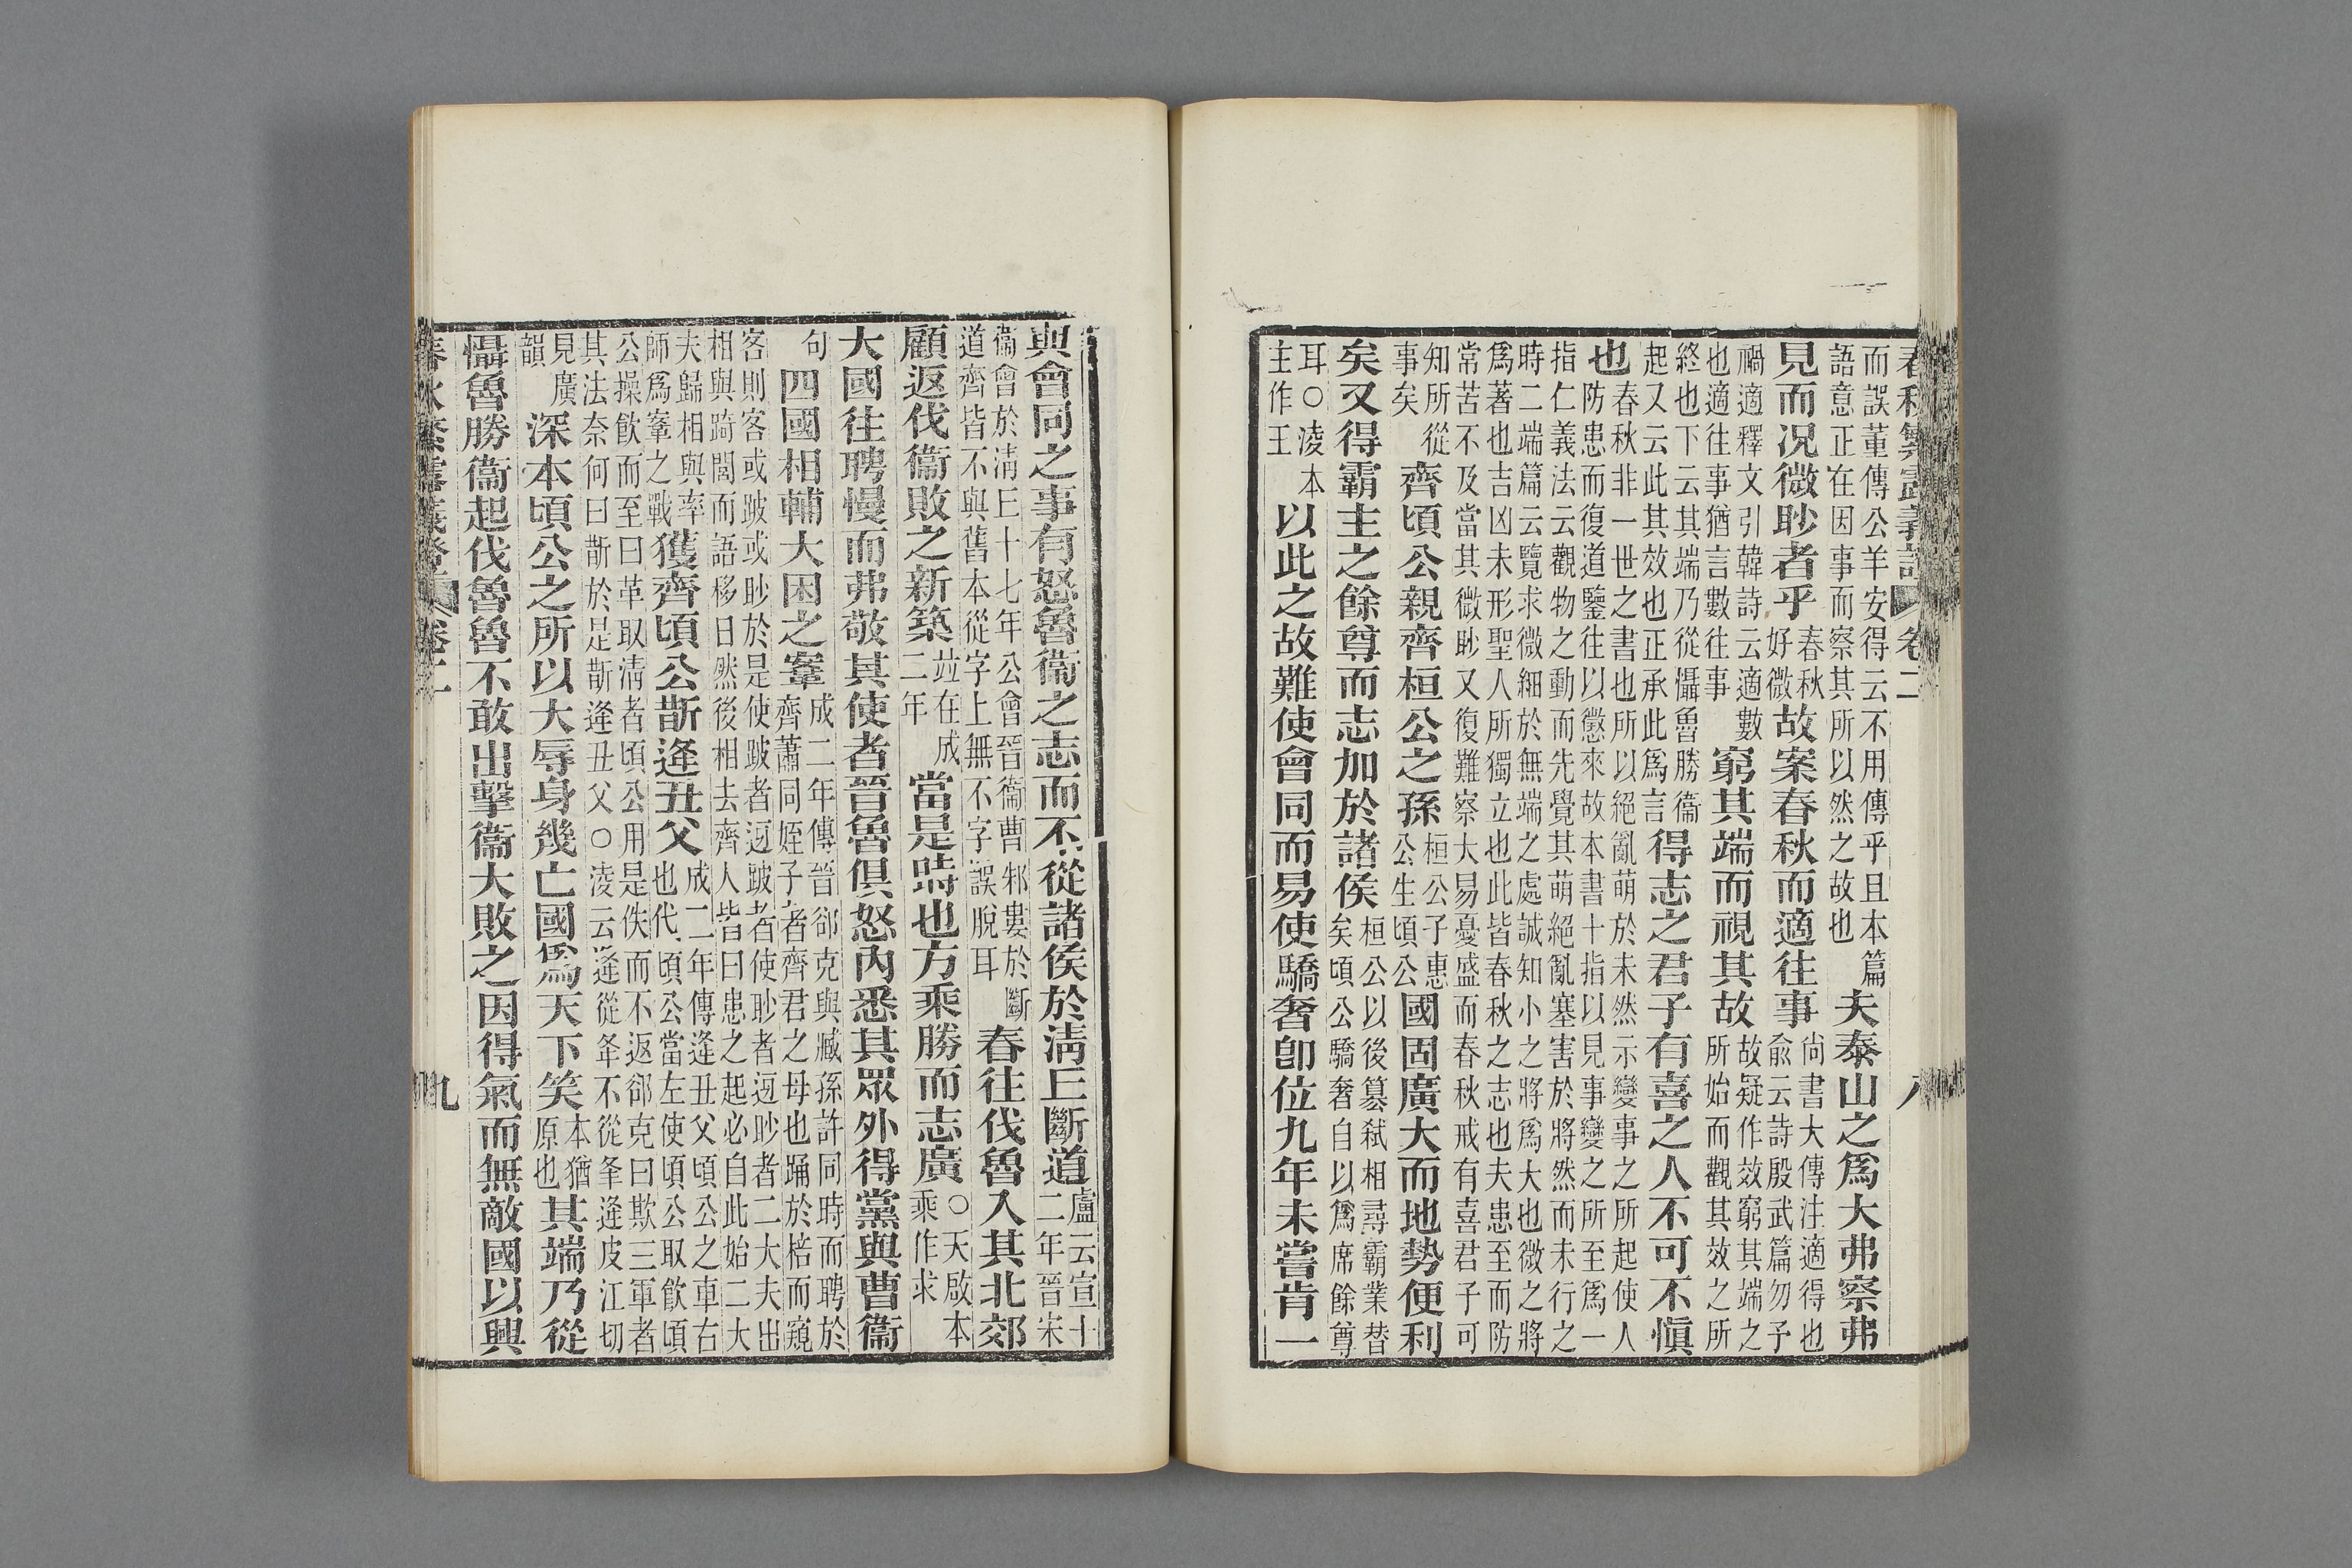 春秋繁露義證 卷二 八
而誤董傳公羊安得云不用傳乎且本篇
語意正在因事而察其所以然之故也
夫泰山之爲大弗察弗
見而況微眇者乎
春秋
好微
故案春秋而適往事
尚書大傳注適得也
俞云詩殷武篇勿予
禍適釋文引韓詩云適數
也適往事猶言數往事
窮其端而視其故
故疑作效窮其端之
所始而觀其效之所
終也下云其端乃從懾魯勝衞
起又云此其效也正承此爲言
得志之君子有喜之人不可不愼
也
春秋非一世之書也所以絕亂萌於未然示變事之所起使人
防患而復道鑒往以懲來故本書十指以見事變之所至爲一
指仁義法云觀物之動而先覺其萌絕亂塞害於將然而未行之
時二端篇云覽求微細於無端之處誠知小之將爲大也微之將
爲著也吉凶未形聖人所獨立也此皆春秋之志也夫患至而防
常苦不及當其微眇又復難察大易憂盛而春秋戒有喜君子可
知所從
事矣
齊頃公親齊桓公之孫
桓公子惠
公生頃公
國固廣大而地勢便利
矣又得霸主之餘尊而志加於諸侯
桓公以後簒弑相尋霸業替
矣頃公驕奢自以爲席餘尊
耳○淩本
主作王
以此之故難使會同而易使驕奢卽位九年未嘗肯一
與會同之事有怒魯衞之志而不從諸侯於淸丘斷道
盧云宣十
二年晉宋
衞會於淸丘十七年公會晉衞曹邾婁於斷
道齊皆不與舊本從字上無不字誤脫耳
春往伐魯入其北郊
顧返伐衞敗之新築
竝在成
二年
當是時也方乘勝而志廣
○天啟本
乘作求
大國往聘慢而弗敬其使者晉魯俱怒內悉其眾外得黨與曹衞
句
四國相輔大困之鞌
成二年傳晉郤克與臧孫許同時而聘於
齊蕭同姪子者齊君之母也踊於棓而窺
客則客或跛或眇於是使跛者迓跛者使眇者迓眇者二大夫出
相與踦閭而語移日然後相去齊人皆曰患之起必自此始二大
夫歸相與率
師爲鞌之戰
獲齊頃公斮逄丑父
成二年傳逄丑父頃公之車右
也代頃公當左使頃公取飮頃
公操飮而至曰革取淸者頃公用是佚而不返郤克曰欺三軍者
其法奈何曰斮於是斮逄丑父○淩云逄從夅不從夆逄皮江切
見廣
韻
深本頃公之所以大辱身幾亡國爲天下笑
本猶
原也
其端乃從
懾魯勝衞起伐魯魯不敢出擊衞大敗之因得氣而無敵國以興
春秋繁露義證 卷二 九